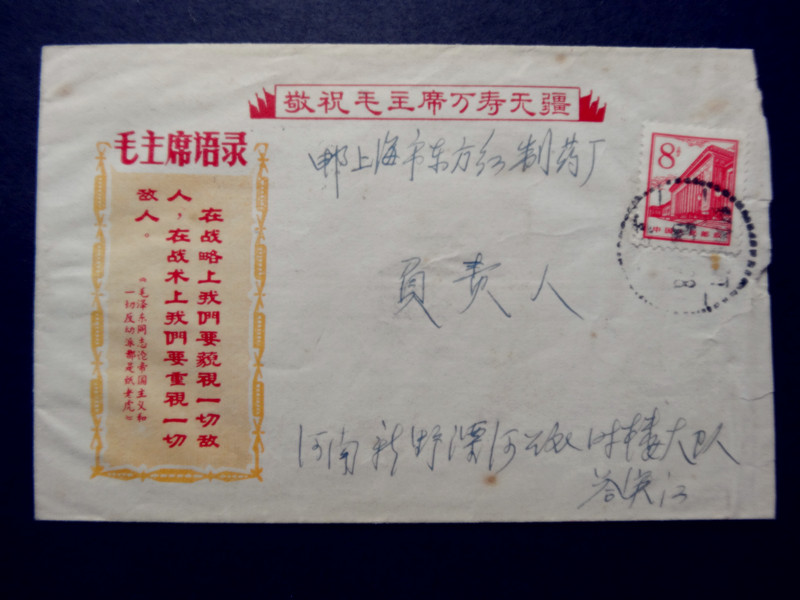 敬祝毛主席万寿无疆
毛主席语录
在战略上我們要藐視一切敌
人，在战术上我們要重視一切
敌人。
《毛泽东同志论帝国主义和
一切反动派都是纸老虎》
邮上海市东方红制药厂
8分
負责人
河南新野溧河公社时楼大队